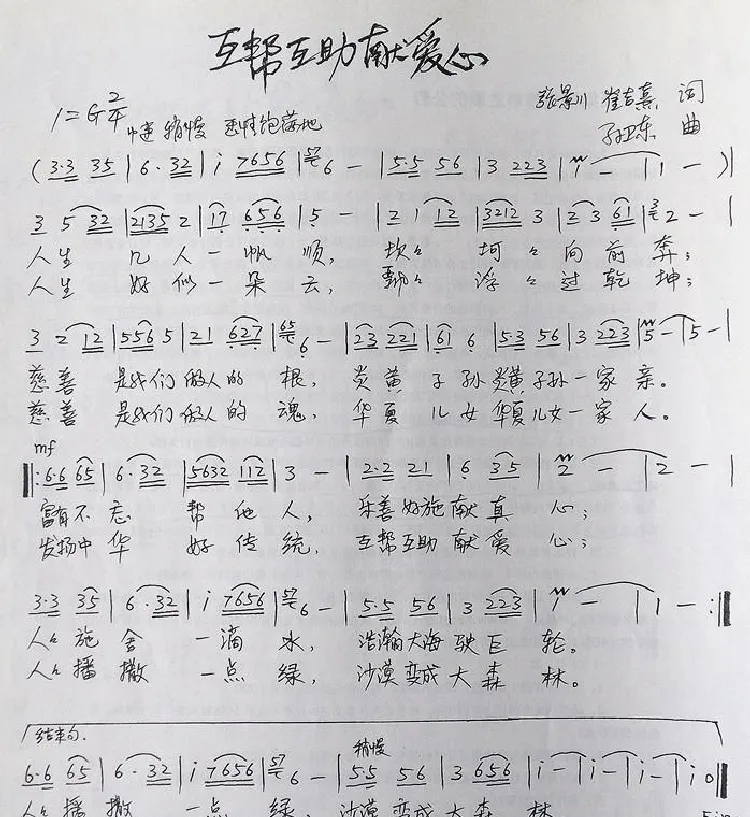 互帮互助献爱心
1=G 2/4 中速 稍慢 感情饱满地
张景川 崔吉熹 词
孙卫东 曲
(3·3 35 | 6·32 | i 7656 | 57 6 – | 5·5 56 | 3 223 | 1 – | 1 – )|
3 5 32 | 2135 2 | 17 656 | 5 – | 2 1 12 | 3212 3 | 2 3 61 | 3 2 – |
人生 几人一帆顺, 坎々坷々向前奔;
人生 好似一朵云, 飘々浮々过乾坤;
3 2 12 | 556 5 | 21 627 | 65 6 – | 23 221 | 61 6 | 53 56 | 3 223 | 5 – | 5 – |
慈善 是我们做人的 根, 炎黄子孙炎黄子孙一家亲。
慈善 是我们做人的 魂, 华夏儿女华夏儿女一家人。
mf
|:6·6 65 | 6·32 | 5632 112 | 3 – | 2·2 21 | 6 35 | 2 – | 2 – |
富有不忘 帮他人, 乐善好施献真心;
发扬中华 好传统, 互帮互助献爱心;
3·3 35 | 6·32 | i 7656 | 57 6 – | 5·5 56 | 3 223 | 1 – | 1 – :|
人々施舍 一滴水, 浩瀚大海驶巨轮。
人々播撒 一点绿, 沙漠变成大森林。
结束句. 稍慢
6·6 65 | 6·32 | i 7656 | 57 6 – | 5·5 56 | 3 656 | i – | i – | i – | i 0 |
人々播撒 一点绿, 沙漠变成大森林
Fin